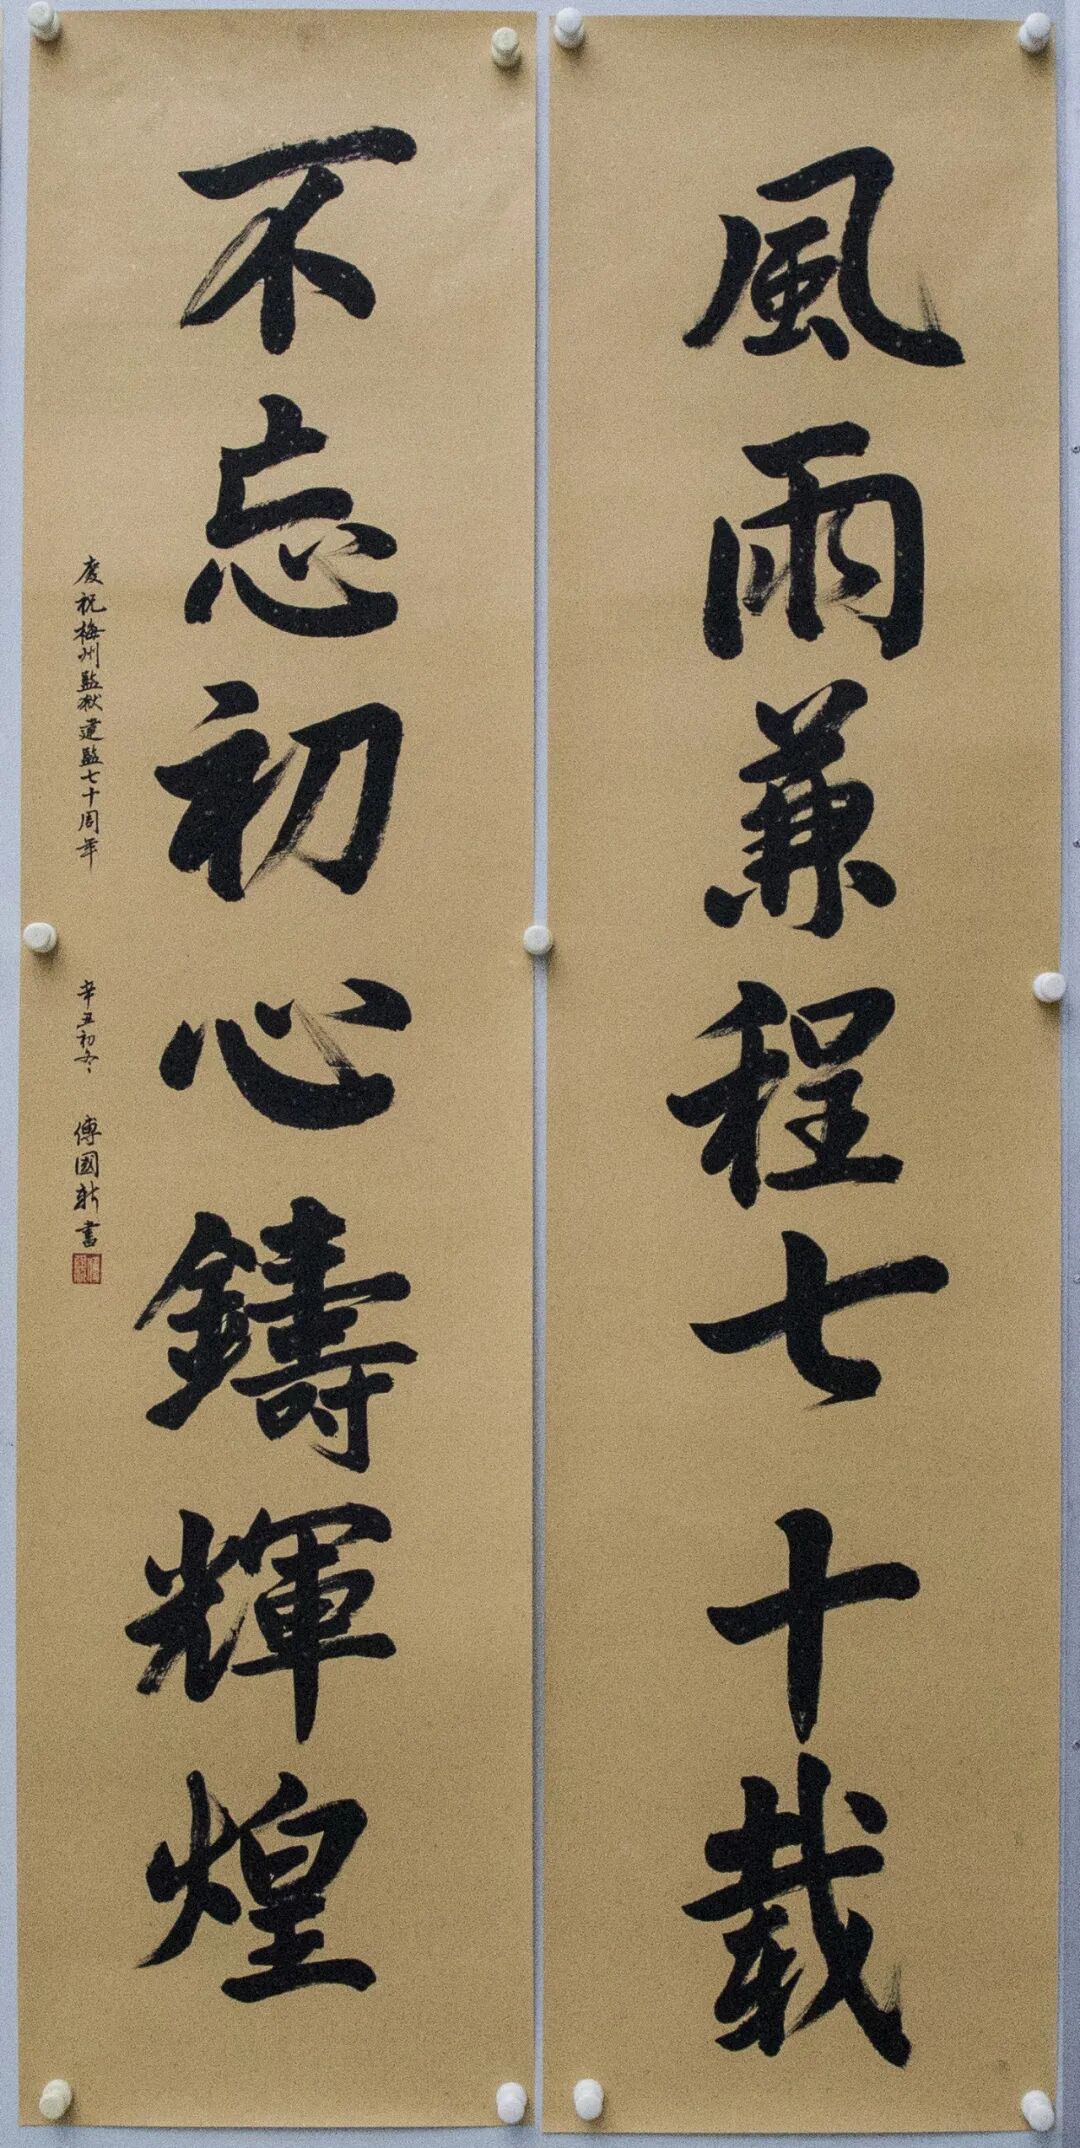 風雨兼程七十載
不忘初心鑄輝煌
慶祝梅州監獄建監七十周年
辛丑初冬 傅國新書